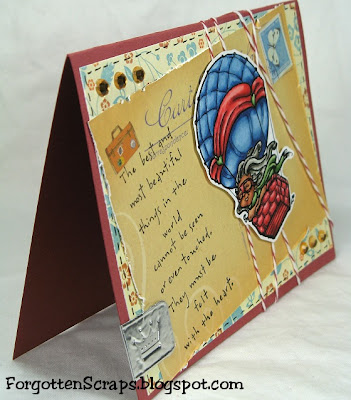 Cart
The best and
most beautiful
things in the
world
cannot be seen
or even touched.
They must be
felt
with the heart.
ForgottenScraps.blogspot.com